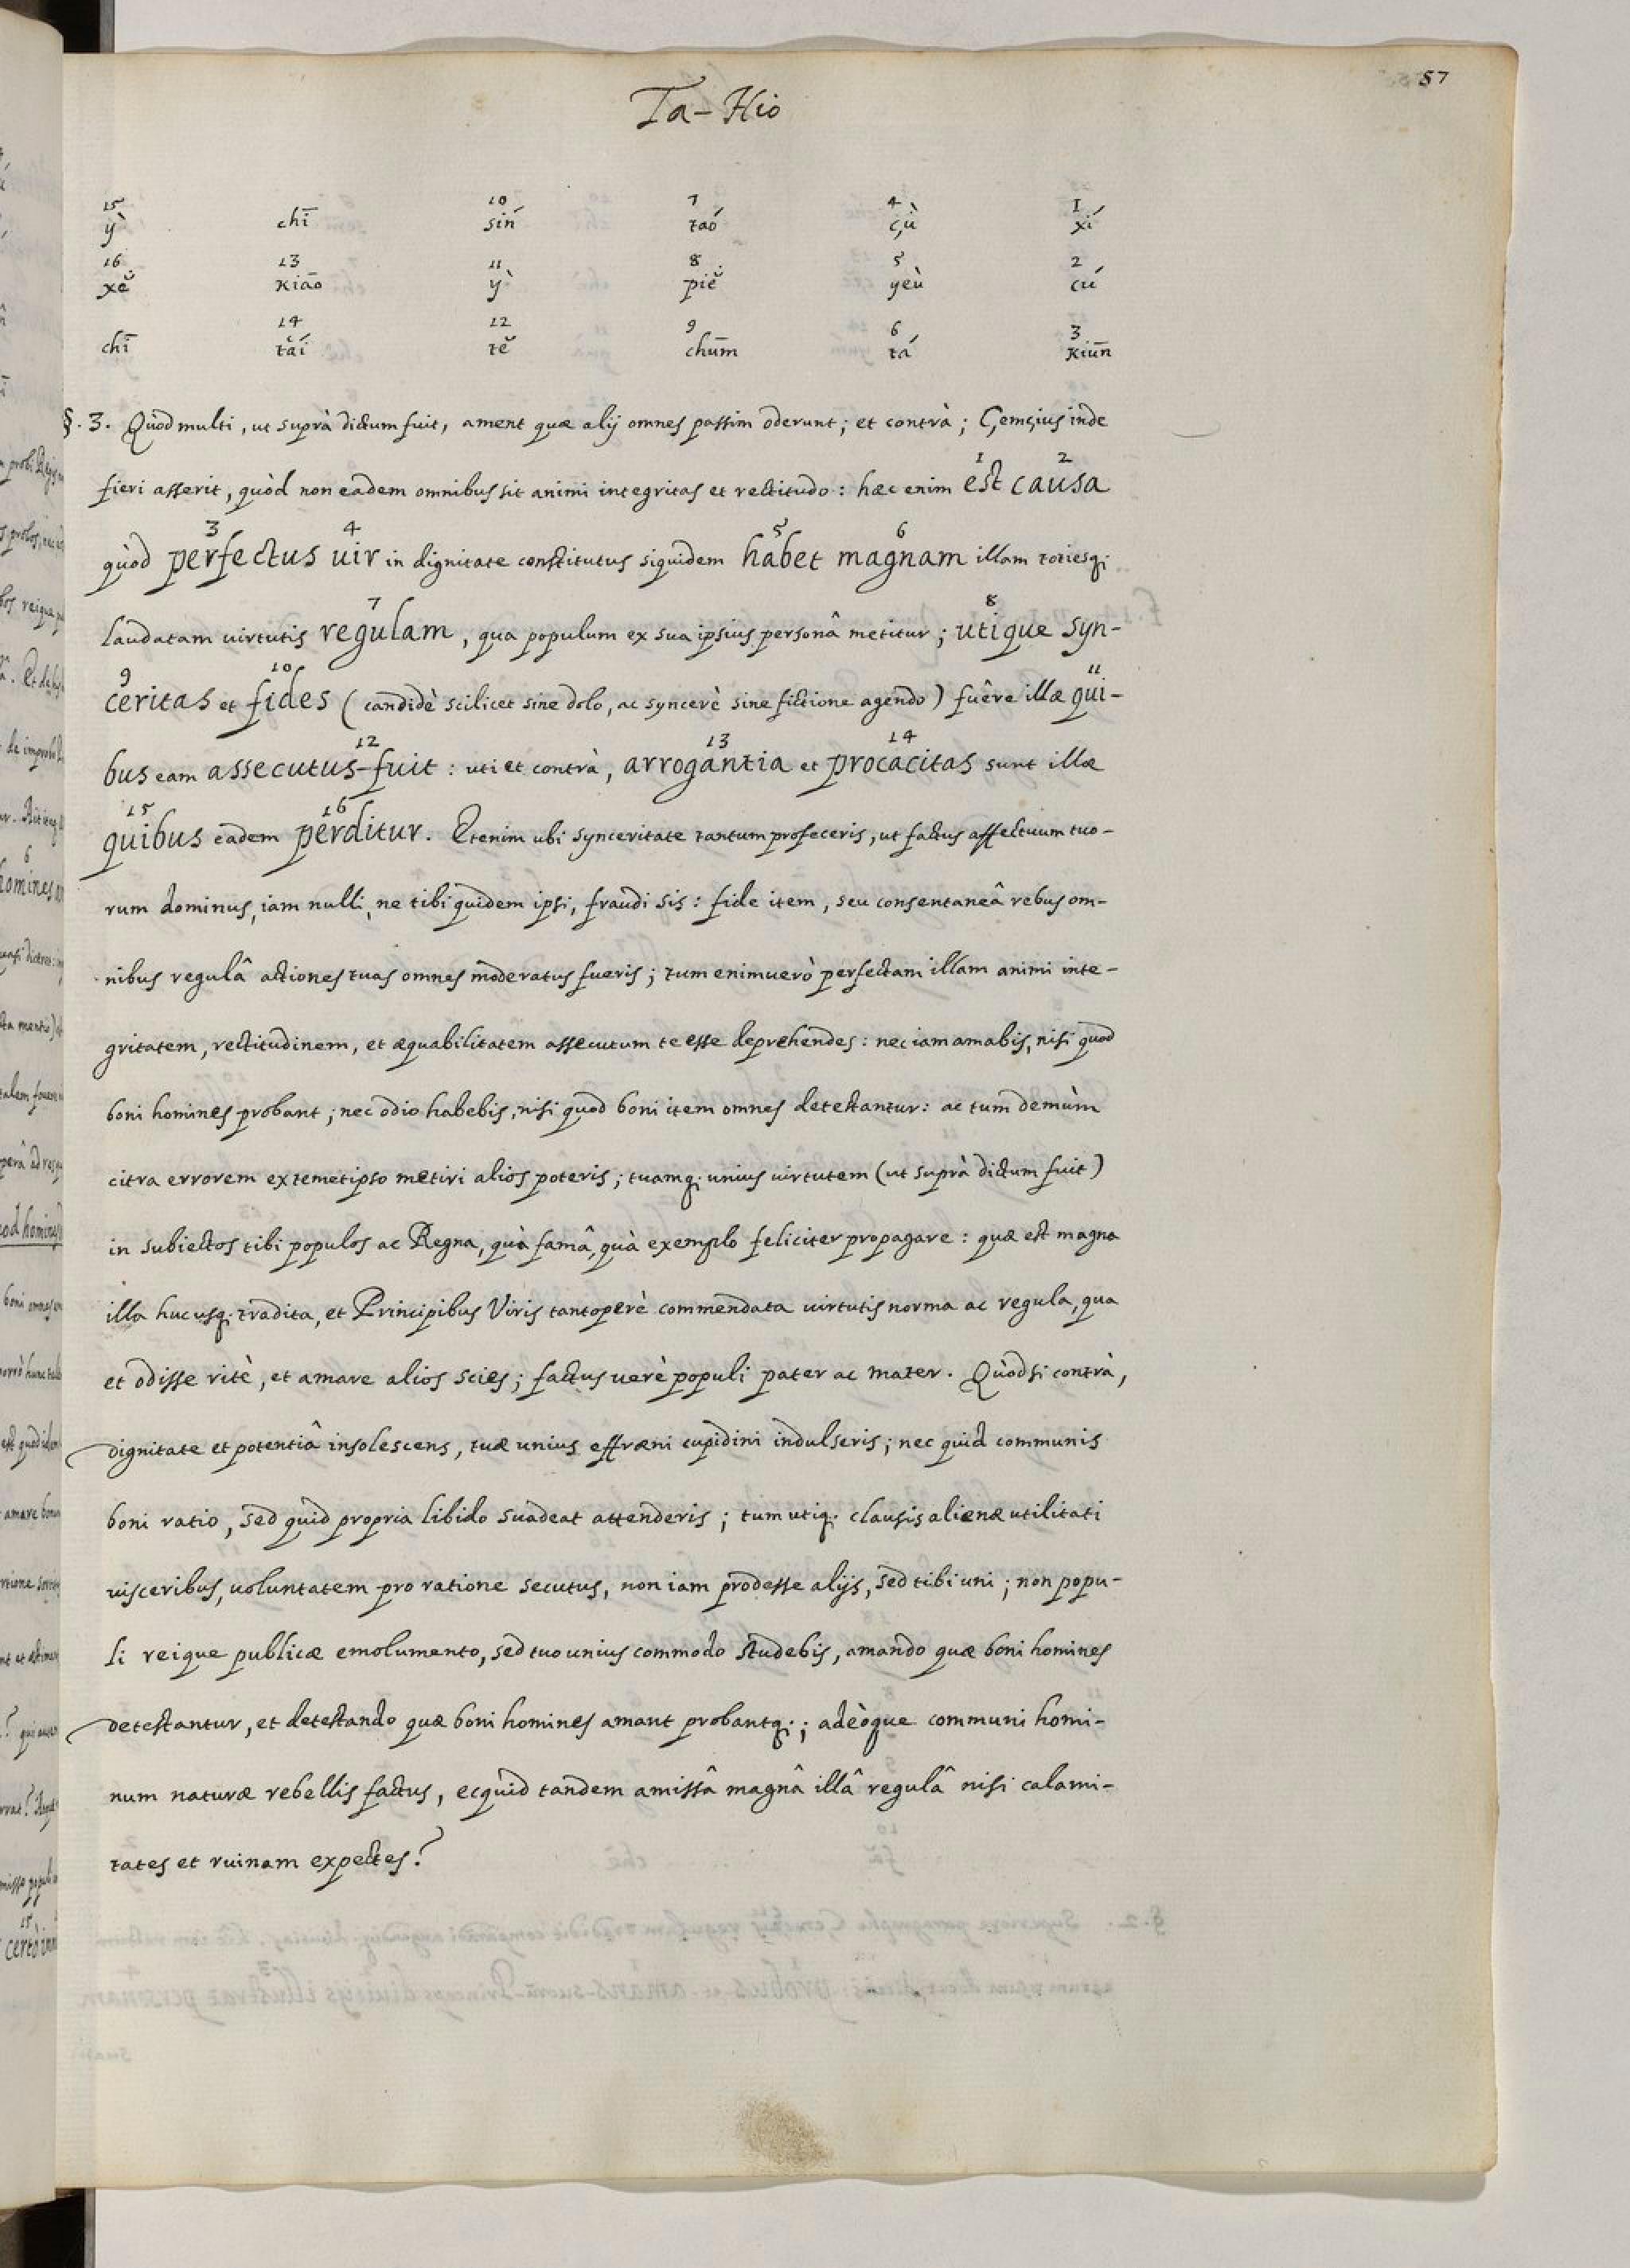 57
Ta-Hio
15 10 7 4 1
ỳ chī sín táo çù xí
16 13 11 8 5 2
xĕ kiāo ỳ piĕ yeù cú
14 12 9 6 3
chī tʻái tĕ chūm tá kiūn
§. 3. Quòd multi, ut suprà dictum fuit, ament quæ alij omnes passim oderunt; et contrà; Çemçius inde
1 2
fieri asserit, quòd non eadem omnibus sit animi integritas et rectitudo: hæc enim est causa
3 4 5 6
quòd perfectus uir in dignitate constitutus siquidem habet magnam illam totiesq;
7 8
laudatam uirtutis regulam, qua populum ex sua ipsius personâ metitur; utique syn-
9 10 11
ceritas et fides (candidè scilicet sine dolo, ac syncerè sine fictione agendo) fuêre illæ qui-
12 13 14
bus eam assecutus-fuit: uti et contrà, arrogantia et procacitas sunt illæ
15 16
quibus eadem perditur. Etenim ubi synceritate tantum profeceris, ut factus affectuum tuo-
rum dominus, iam nulli, ne tibi quidem ipsi, fraudi sis: fide item, seu consentaneâ rebus om-
nibus regulâ actiones tuas omnes moderatus fueris; tum enimuerò perfectam illam animi inte-
gritatem, rectitudinem, et æquabilitatem assecutum te esse deprehendes: nec iam amabis, nisi quod
boni homines probant; nec odio habebis, nisi quod boni item omnes detestantur: ac tum demùm
citra errorem ex temetipso metiri alios poteris; tuamq; unius uirtutem (ut suprà dictum fuit)
in subiectos tibi populos ac Regna, quà famâ, quà exemplo feliciter propagare: quæ est magna
illa hucusq; tradita, et Principibus Viris tantoperè commendata uirtutis norma ac regula, qua
et odisse ritè, et amare alios scies; factus uerè populi pater ac mater. Quòd si contrà,
dignitate et potentiâ insolescens, tuæ unius effræni cupidini indulseris; nec quid communis
boni ratio, sed quid propria libido suadeat attenderis; tum utiq; clausis alienæ utilitati
uisceribus, uoluntatem pro ratione secutus, non iam prodesse alijs, sed tibi uni; non popu-
li reique publicæ emolumento, sed tuo unius commodo studebis, amando quæ boni homines
detestantur, et detestando quæ boni homines amant probantq;; adeòque communi homi-
num naturæ rebellis factus, ecquid tandem amissâ magnâ illâ regulâ nisi calami-
tates et ruinam expectes?